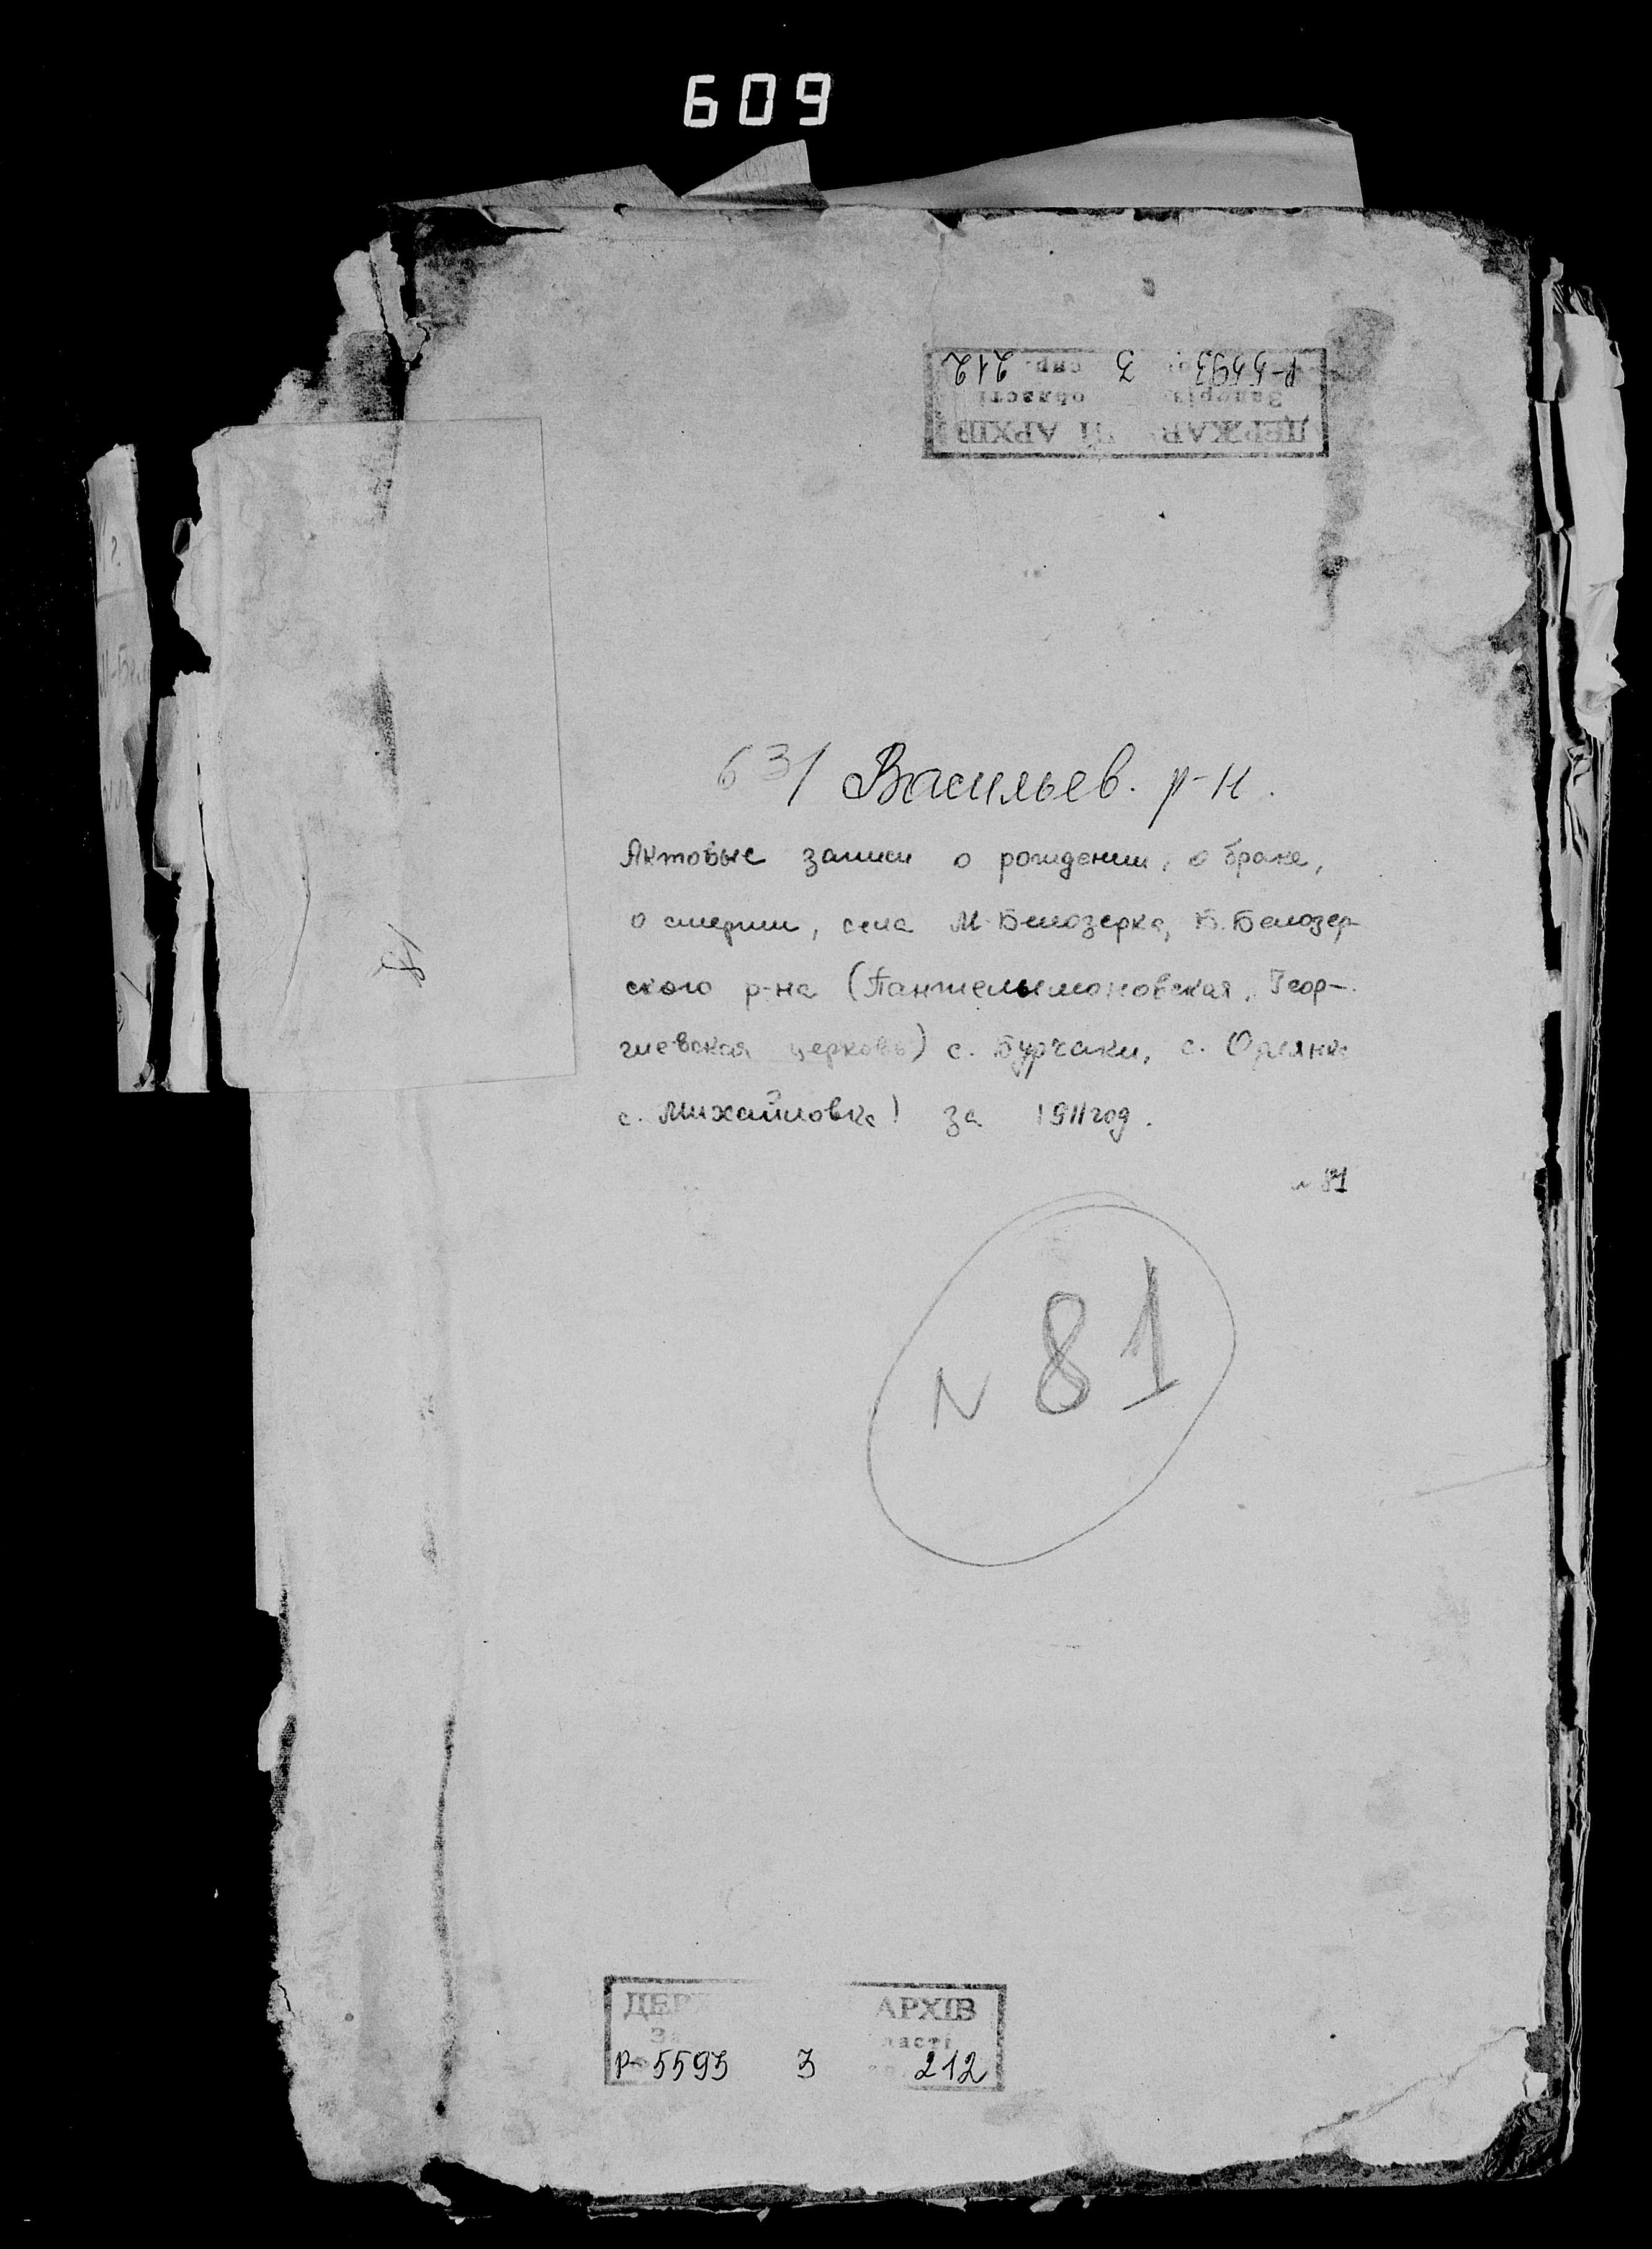 609
ДЕРЖАВ ИЙ АРХІВ
області
Р-5593 3 спр. 212
631 Васильев. р-н.
Актовые записи о рождении, о браке,
о смерти, села М-Белозерка, В. Белозер-
ского р-на (Пантелымоновская, Геор-
гиевская церковь) с. Бурчаки, с. Орлянка
с. Михайловка) за 1911 год.
81
N 81
АРХІВ
Р-5593 3 212